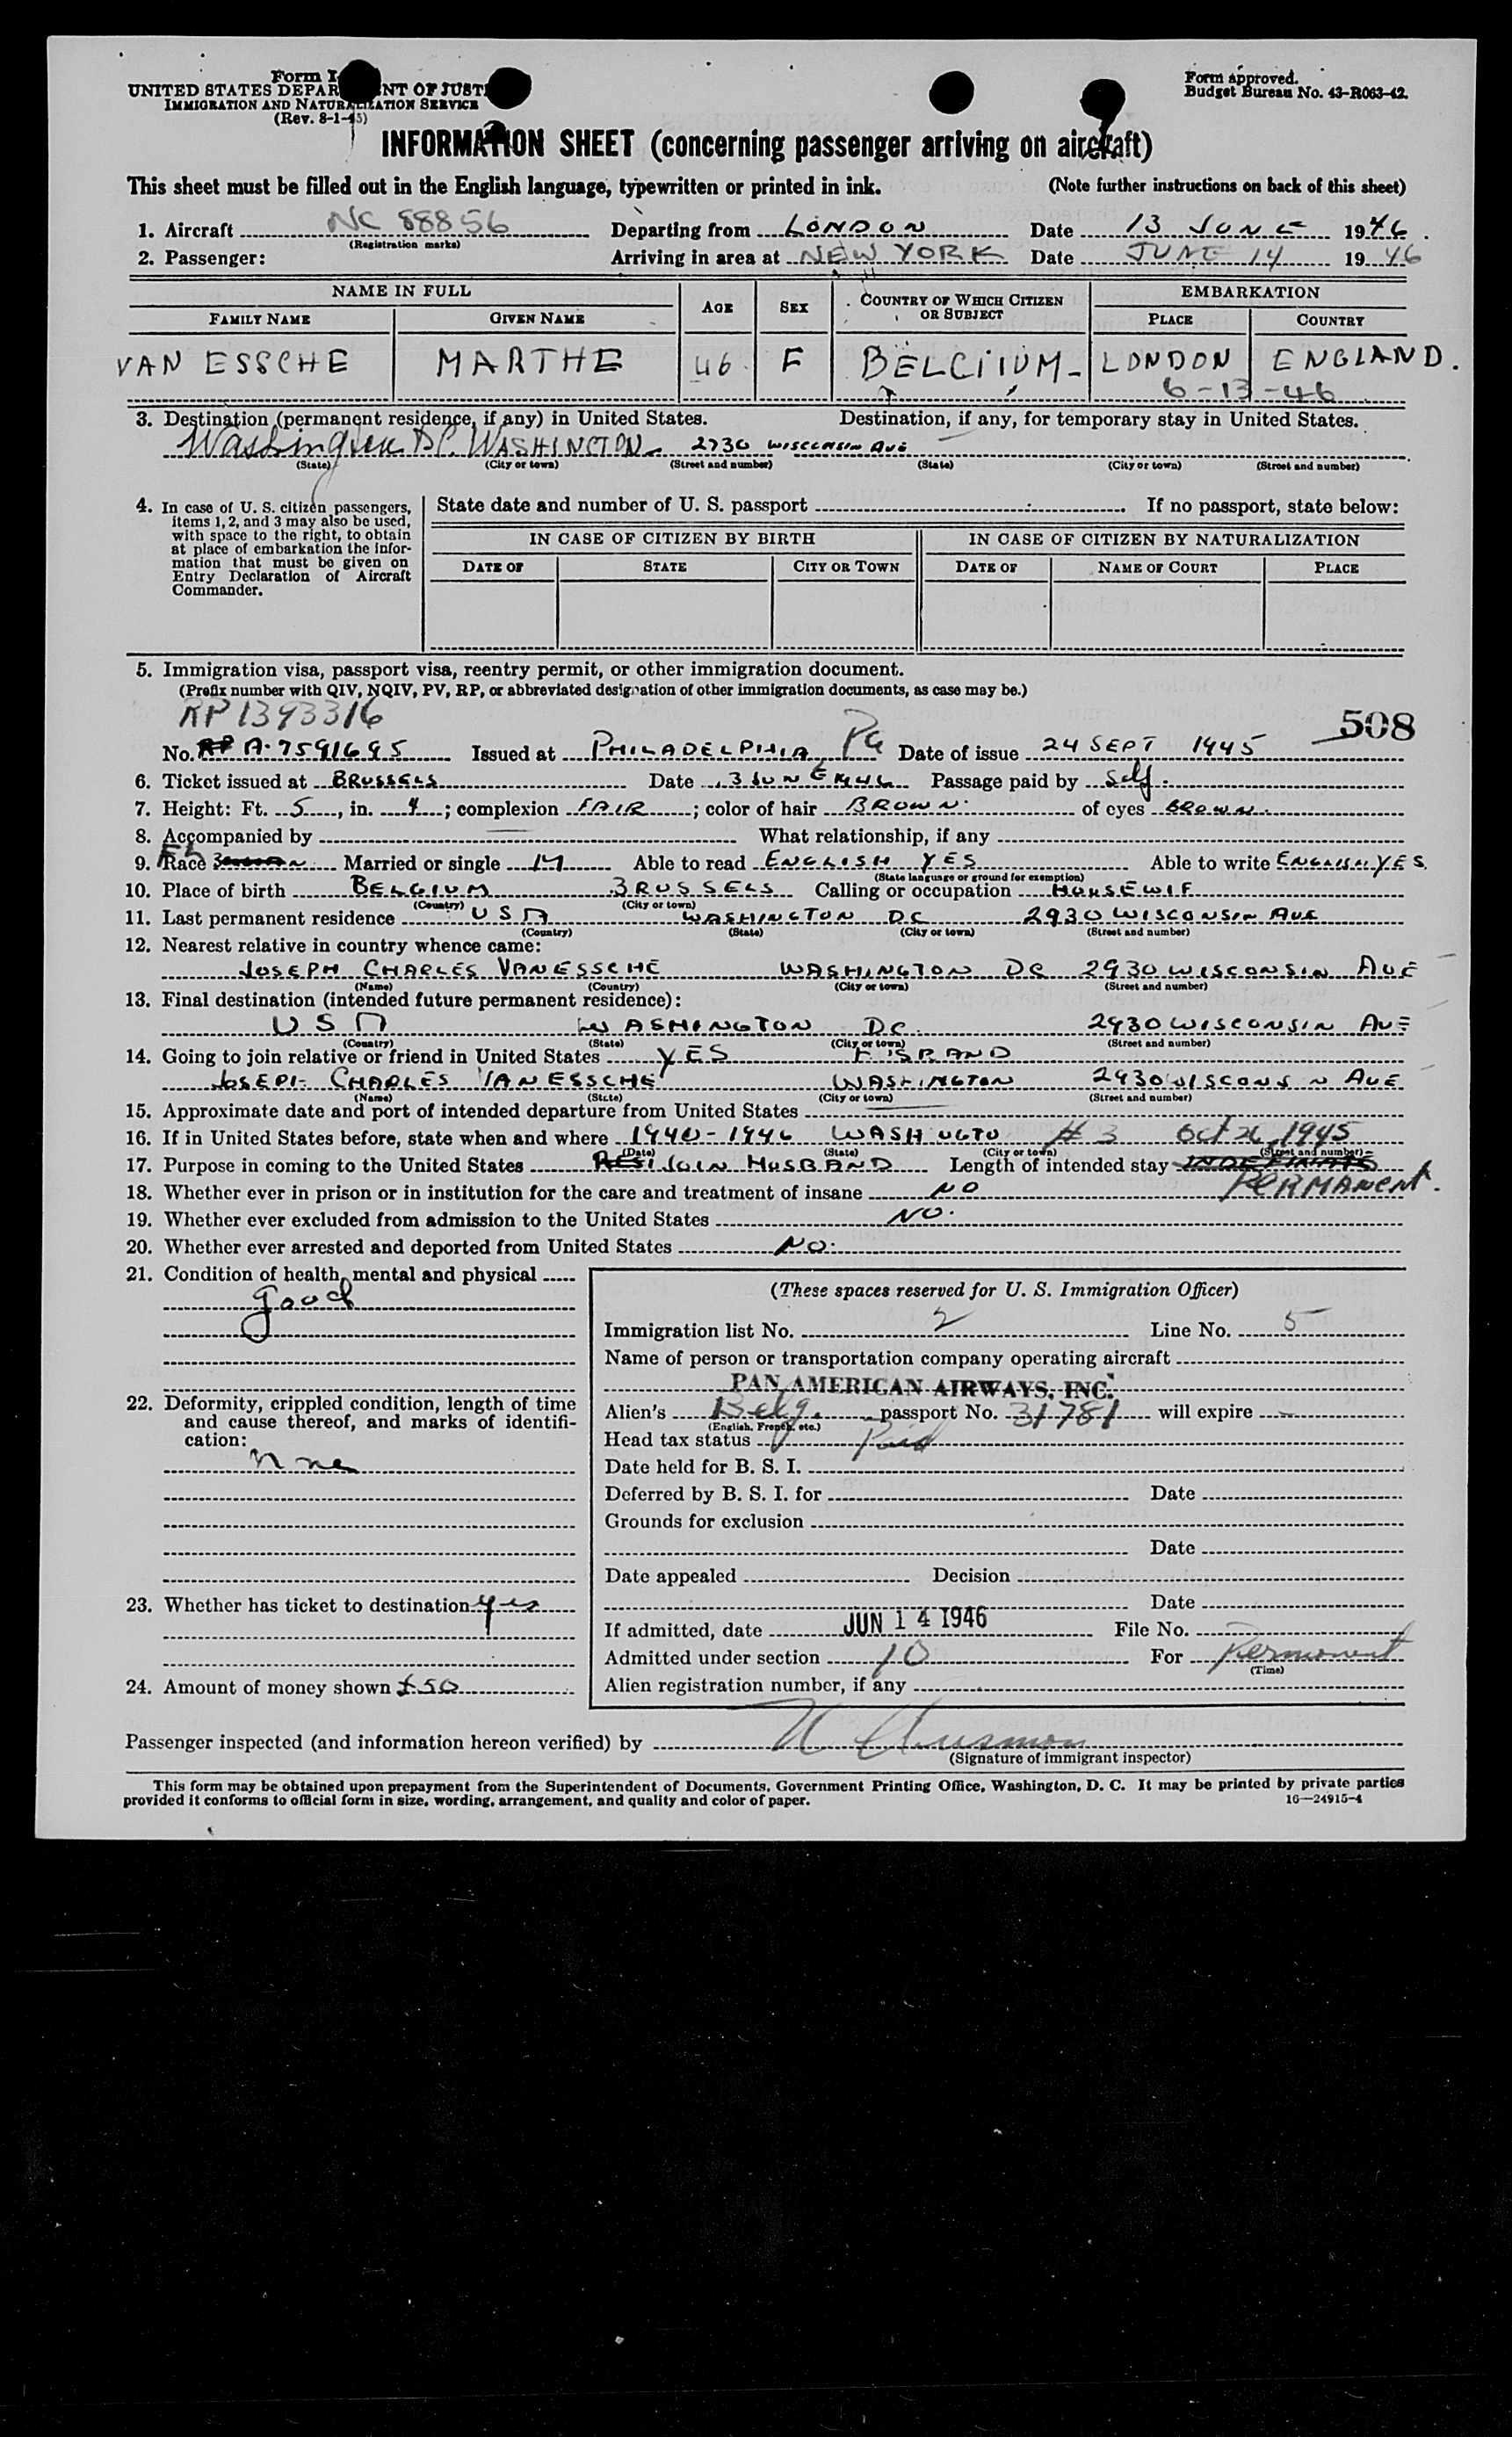 Form I-
UNITED STATES DEPARTMENT OF JUSTICE
IMMIGRATION AND NATURALIZATION SERVICE
(Rev. 8-1-45)
Form approved.
Budget Bureau No. 43-R063-42.
INFORMATION SHEET (concerning passenger arriving on aircraft)
This sheet must be filled out in the English language, typewritten or printed in ink. (Note further instructions on back of this sheet)
1. Aircraft NC 88856 Departing from LONDON Date 13 JUNE 1946.
(Registration marks)
2. Passenger: Arriving in area at NEW YORK Date JUNE 14 1946
NAME IN FULL AGE SEX COUNTRY OF WHICH CITIZEN OR SUBJECT EMBARKATION
FAMILY NAME GIVEN NAME PLACE COUNTRY
VAN ESSCHE MARTHE 46 F BELGIUM LONDON ENGLAND.
6-13-46
3. Destination (permanent residence, if any) in United States. Destination, if any, for temporary stay in United States.
Washington D.C. WASHINGTON 2930 WISCONSIN AVE
(State) (City or town) (Street and number) (State) (City or town) (Street and number)
4. In case of U. S. citizen passengers, items 1, 2, and 3 may also be used, with space to the right, to obtain at place of embarkation the information that must be given on Entry Declaration of Aircraft Commander.
State date and number of U. S. passport If no passport, state below:
IN CASE OF CITIZEN BY BIRTH IN CASE OF CITIZEN BY NATURALIZATION
DATE OF STATE CITY OR TOWN DATE OF NAME OF COURT PLACE
5. Immigration visa, passport visa, reentry permit, or other immigration document.
(Prefix number with QIV, NQIV, PV, RP, or abbreviated designation of other immigration documents, as case may be.)
RP 1393316
508
No. RP A.7591695 Issued at PHILADELPHIA Pa Date of issue 24 SEPT 1945
6. Ticket issued at BRUSSELS Date 3 JUNE 1946 Passage paid by Self.
7. Height: Ft. 5, in. 4; complexion FAIR; color of hair BROWN. of eyes BROWN.
8. Accompanied by — What relationship, if any
9. Race Married or single M Able to read ENGLISH YES Able to write ENGLISH YES
(State language or ground for exemption)
10. Place of birth BELGIUM BRUSSELS Calling or occupation HOUSEWIF
(Country) (City or town)
11. Last permanent residence USA WASHINGTON DC 2930 WISCONSIN AVE
(Country) (State) (City or town) (Street and number)
12. Nearest relative in country whence came:
JOSEPH CHARLES VANESSCHE WASHINGTON DC 2930 WISCONSIN AVE
(Name) (Country) (City or town) (Street and number)
13. Final destination (intended future permanent residence):
USA WASHINGTON DC. 2930 WISCONSIN AVE
(Country) (State) (City or town) (Street and number)
14. Going to join relative or friend in United States YES HUSBAND
JOSEPH CHARLES VANESSCHE WASHINGTON 2930 WISCONSIN AVE
(Name) (State) (City or town) (Street and number)
15. Approximate date and port of intended departure from United States
16. If in United States before, state when and where 1940-1946 WASHINGTO # 3 Oct 26, 1945
(Date) (State) (City or town) (Street and number)
17. Purpose in coming to the United States JOIN HUSBAND Length of intended stay INDEFINATE
PERMANENT.
18. Whether ever in prison or in institution for the care and treatment of insane NO
19. Whether ever excluded from admission to the United States NO.
20. Whether ever arrested and deported from United States NO.
21. Condition of health, mental and physical
good
22. Deformity, crippled condition, length of time and cause thereof, and marks of identification:
None
23. Whether has ticket to destination yes
24. Amount of money shown £50
(These spaces reserved for U. S. Immigration Officer)
Immigration list No. 2 Line No. 5
Name of person or transportation company operating aircraft
PAN AMERICAN AIRWAYS, INC.
Alien's Belg. passport No. 31781 will expire —
(English, French, etc.)
Head tax status Paid
Date held for B. S. I.
Deferred by B. S. I. for Date
Grounds for exclusion
Date
Date appealed Decision
Date
If admitted, date JUN 14 1946 File No.
Admitted under section 10 For Permanent
(Time)
Alien registration number, if any
Passenger inspected (and information hereon verified) by
(Signature of immigrant inspector)
This form may be obtained upon prepayment from the Superintendent of Documents, Government Printing Office, Washington, D. C. It may be printed by private parties
provided it conforms to official form in size, wording, arrangement, and quality and color of paper. 16—24915-4